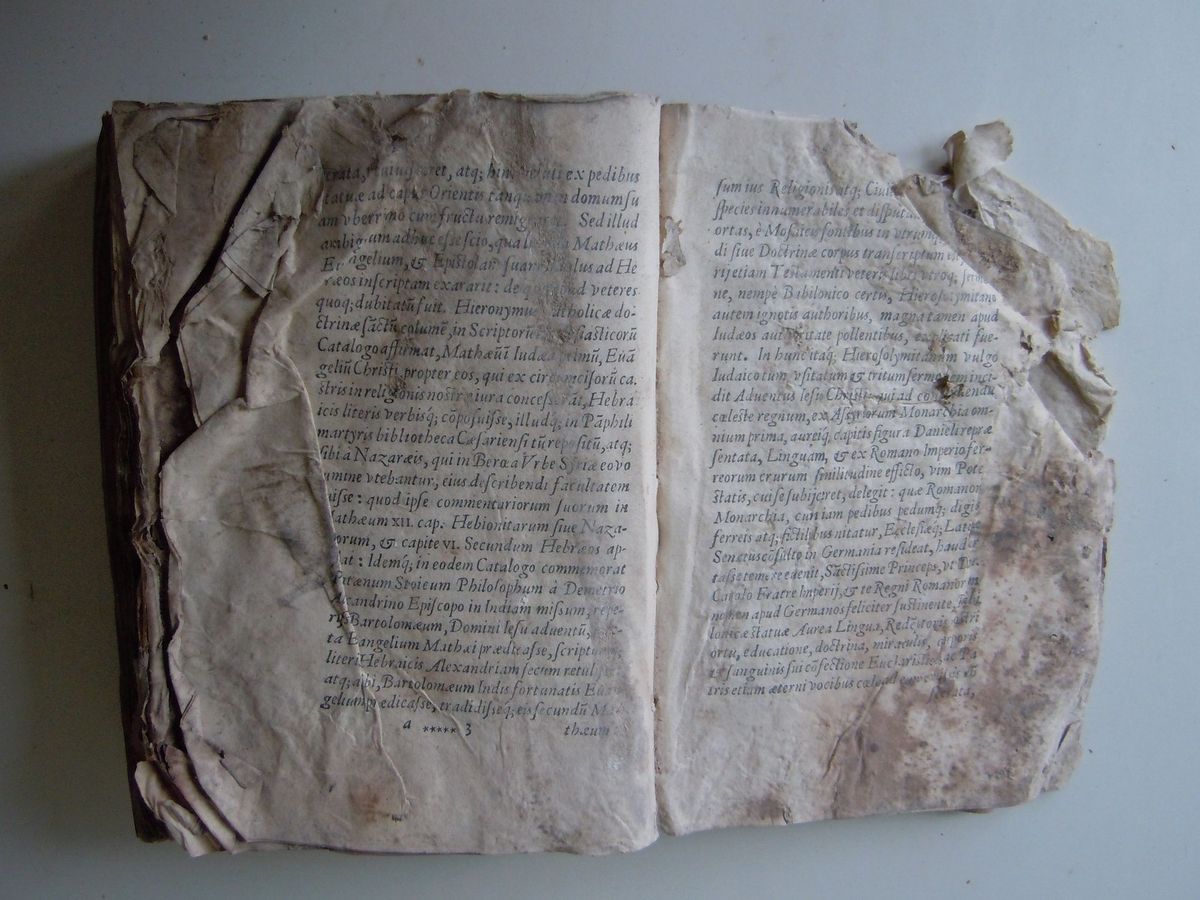 ex pedibus
ſtatuæ ad caput Orientis domum ſu
am vberrimo cum fructu Sed illud
ambiguum adhuc eſſe ſcio, Mathæus
Euangelium, & Epiſtolam ſuam Paulus ad He
bræos inſcriptam exararit: de quo apud veteres
quoq; dubitatũ fuit. Hieronymus Catholicæ do-
ctrinæ ſãctũ columẽ, in Scriptorũ Eccleſiaſticorũ
Catalogo affirmat, Mathæũ ĩ Iudæa primũ, Euã
geliũ Chriſti propter eos, qui ex circũmciſorũ ca.
ſtris in religionis noſtræ iura conceſſerãt, Hebra
icis literis verbisq́; cõpoſuiſſe, illudq́; in Pãphili
martyris bibliotheca Cæſarienſi tũ repoſitũ, atq;
ſibi à Nazaræis, qui in Berœa Vrbe Syriæ eo vo
lumine vtebantur, eius deſcribendi facultatem
fuiſſe: quod ipſe commentariorum ſuorum in
Mathæum XII. cap. Hebionitarum ſiue Naza-
rorum, & capite VI. Secundum Hebræos ap-
pellat: Idemq́; in eodem Catalogo commemorat
Pãtænum Stoicum Philoſophum à Demetrio
Alexandrino Epiſcopo in Indiam miſſum, repe-
riſſe Bartolomæum, Domini Ieſu aduentũ,
ta Euangelium Mathæi prædicaſſe, ſcriptumq́;
literis Hebraicis Alexandriam ſecum retuliſſe
atq; alibi, Bartolomæum Indis fortunatis Euan
gelium prædicaſſe, tradidiſſeq́; eis ſecundũ Ma-
a ***** 3 thæum
ſum ius Religionis atq; Ciuit
ſpecies innumerabiles et diſputa
ortas, è Moſaicis fontibus in vtrumq;
di ſiue Doctrinæ corpus tranſcriptum
rij etiam Teſtamenti veteris libri vtroq; ſermo
ne, nempè Babilonico certis, Hieroſolymitano
autem ignotis authoribus, magna tamen apud
Iudæos autoritate pollentibus, explicati fue-
runt. In hunc itaq; Hieroſolymitanum vulgo
Iudaico tum vſitatum & tritum ſermonem inci
dit Aduentus Ieſu Chriſti qui ad
cœleſte regnum, ex Aſſyriorum Monarchia om-
nium prima, aureiq́; capitis figura Danieli repræ
ſentata, Linguam, & ex Romano Imperio fer-
reorum crurum ſimilitudine efficto, vim Pote
ſtatis, cui ſe ſubijceret, delegit: quæ Romanor
Monarchia, cum iam pedibus pedumq́; digit
ferreis atq; fictilibus nitatur, Eccleſiæq́; Latin
Senatuscõſulto in Germania reſideat, haud
taſſe temere euenit, Sãctiſsime Princeps, vt
Carolo Fratre Imperij, & te Regni Romanorum
nomen apud Germanos feliciter ſuſtinente,
lonicæ ſtatuæ Aurea Lingua, Redẽptoris noſtri
ortu, educatione, doctrina, miraculis, corporis
& ſanguinis ſui cõfectione Euchariſtiæ, ac Pa
tris etiam æterni vocibus cælo